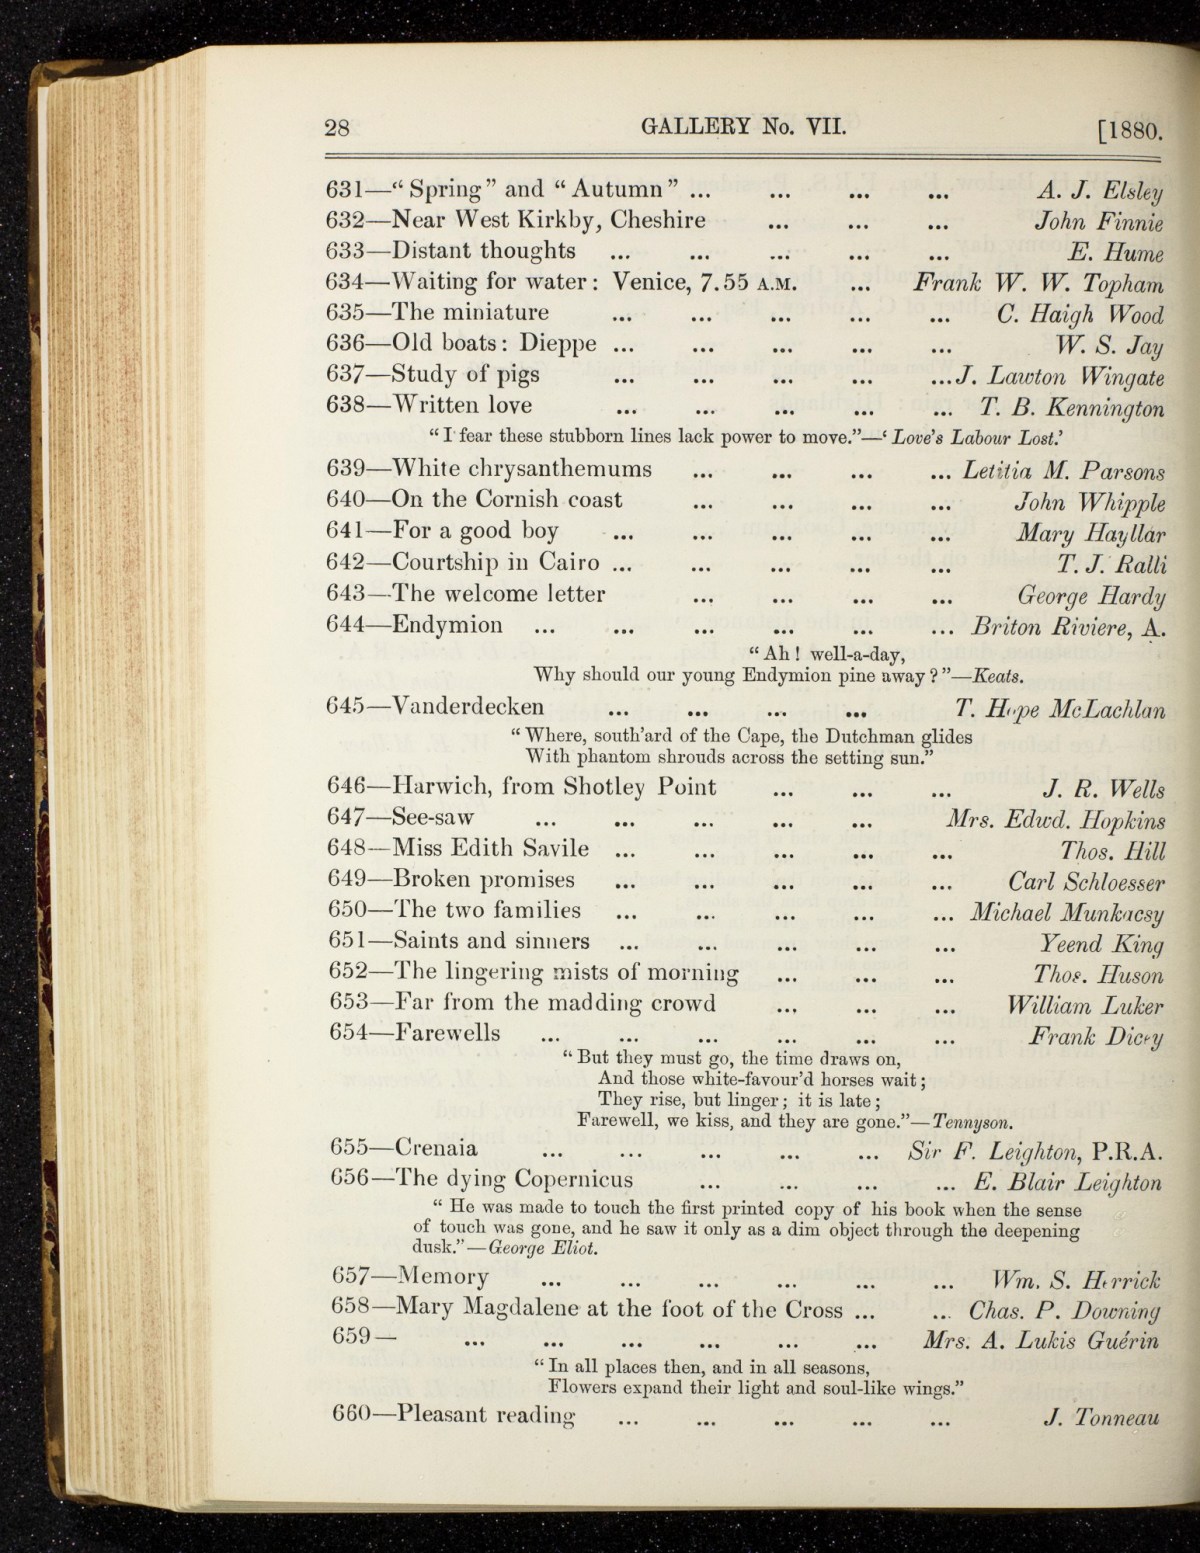 28 GALLERY No. VII. [1880.
631—“Spring” and “Autumn” ... ... ... ... A. J. Elsley
632—Near West Kirkby, Cheshire ... ... ... John Finnie
633—Distant thoughts ... ... ... ... ... E. Hume
634—Waiting for water: Venice, 7.55 A.M. ... Frank W. W. Topham
635—The miniature ... ... ... ... ... C. Haigh Wood
636—Old boats: Dieppe ... ... ... ... ... W. S. Jay
637—Study of pigs ... ... ... ... ...J. Lawton Wingate
638—Written love ... ... ... ... ... T. B. Kennington
“I fear these stubborn lines lack power to move.”—‘Love's Labour Lost.’
639—White chrysanthemums ... ... ... ... Letitia M. Parsons
640—On the Cornish coast ... ... ... ... John Whipple
641—For a good boy ... ... ... ... ... Mary Hayllar
642—Courtship in Cairo ... ... ... ... ... T. J. Ralli
643—The welcome letter ... ... ... ... George Hardy
644—Endymion ... ... ... ... ... ... Briton Riviere, A.
“Ah! well-a-day,
Why should our young Endymion pine away?”—Keats.
645—Vanderdecken ... ... ... ... T. Hope McLachlan
“Where, south'ard of the Cape, the Dutchman glides
With phantom shrouds across the setting sun.”
646—Harwich, from Shotley Point ... ... ... J. R. Wells
647—See-saw ... ... ... ... ... Mrs. Edwd. Hopkins
648—Miss Edith Savile ... ... ... ... ... Thos. Hill
649—Broken promises ... ... ... ... ... Carl Schloesser
650—The two families ... ... ... ... ... Michael Munkacsy
651—Saints and sinners ... ... ... ... ... Yeend King
652—The lingering mists of morning ... ... ... Thos. Huson
653—Far from the madding crowd ... ... ... William Luker
654—Farewells ... ... ... ... ... ... Frank Dicey
“But they must go, the time draws on,
And those white-favour'd horses wait;
They rise, but linger; it is late;
Farewell, we kiss, and they are gone.”—Tennyson.
655—Crenaia ... ... ... ... ... Sir F. Leighton, P.R.A.
656—The dying Copernicus ... ... ... ... E. Blair Leighton
“He was made to touch the first printed copy of his book when the sense
of touch was gone, and he saw it only as a dim object through the deepening
dusk.”—George Eliot.
657—Memory ... ... ... ... ... ... Wm. S. Herrick
658—Mary Magdalene at the foot of the Cross ... ... Chas. P. Downing
659— ... ... ... ... ... ... Mrs. A. Lukis Guérin
“In all places then, and in all seasons,
Flowers expand their light and soul-like wings.”
660—Pleasant reading ... ... ... ... ... J. Tonneau